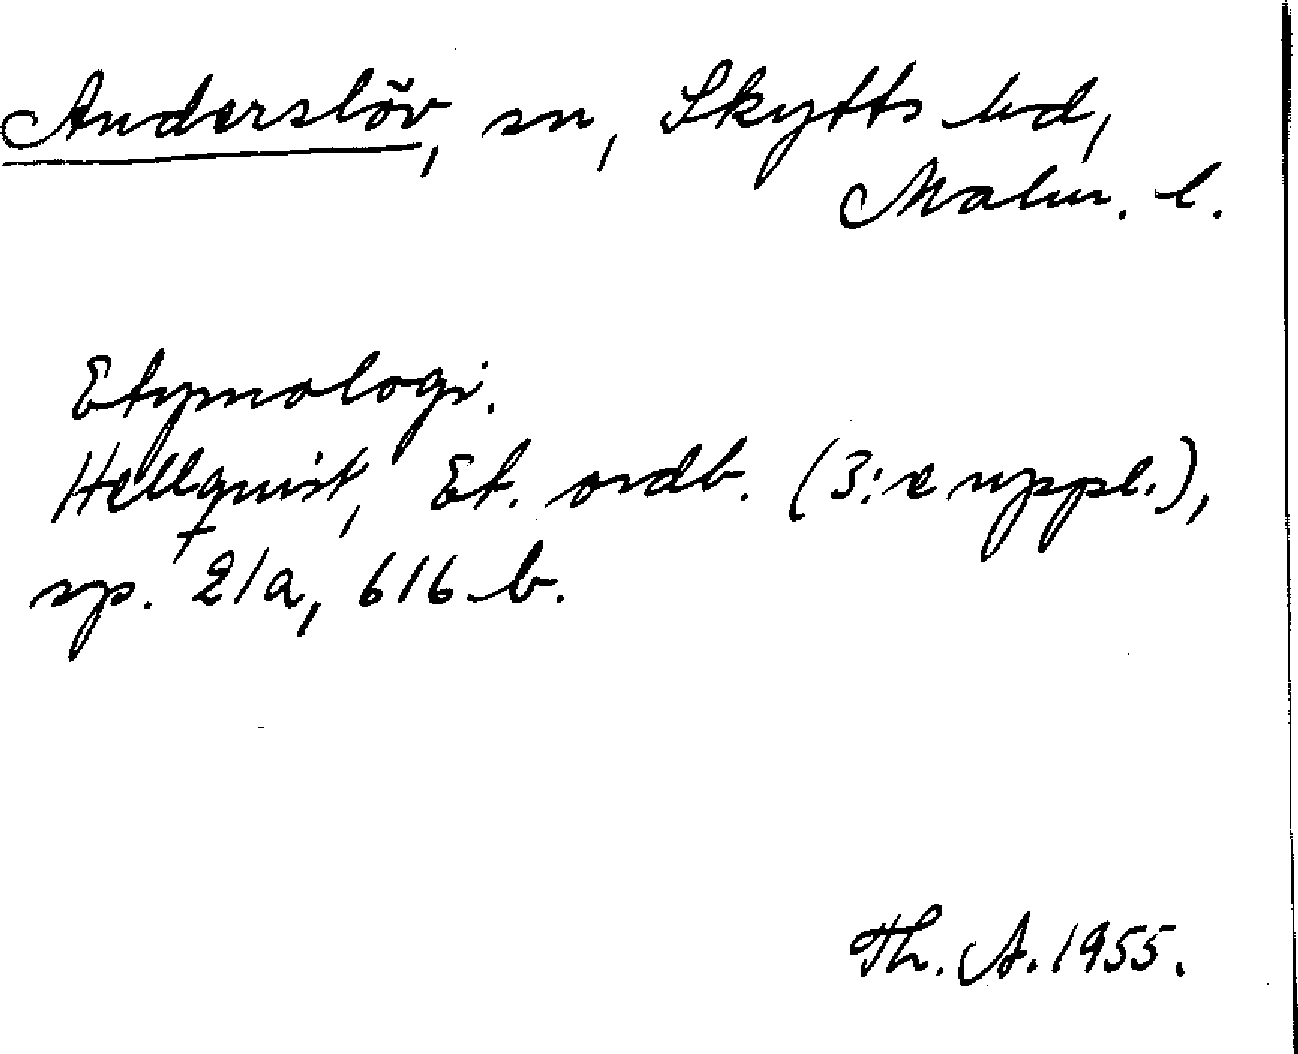 Anderslöv, sn, Skytts hd,
Malm. l.
Etymologi.
Hellquist, Et. ordb. (3:e uppl.),
sp. 21a, 616 b.
Th. A. 1955.